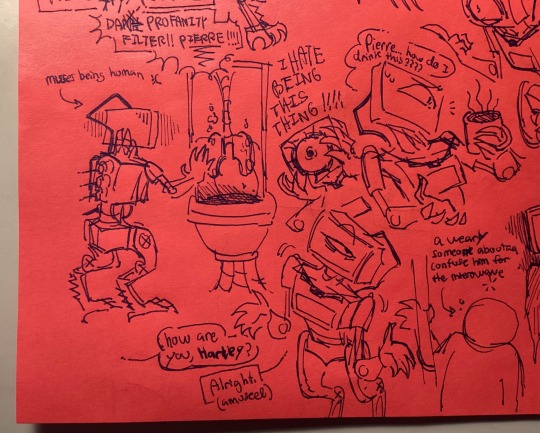 DAMN PROFANITY
FILTER!! PIERRE!!!!
misses being human :(
I HATE
BEING
THIS
THING!!!!
Pierre... how do I
drink this????
a weary
someone about to
confuse him for
the microwave
how are
you, Harley?
Alright.
(amused)